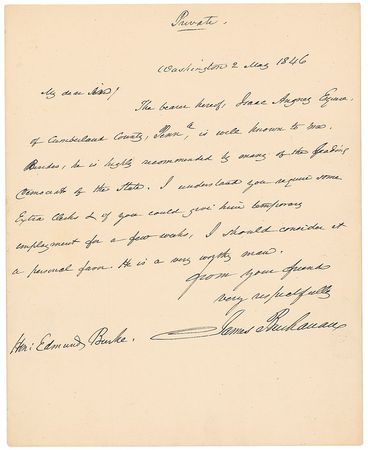 Private.
Washington 2 May 1846
My dear Sir!
The bearer hereof, Isaac Angney Esquire
of Cumberland County, Penna, is well known to me.
Besides, he is highly recommended by many of the leading
Democrats of the State. I understand you require some
Extra Clerks & if you could give him temporary
employment for a few weeks, I should consider it
a personal favor. He is a very worthy man.
from your friend
very respectfully
James Buchanan
Hon: Edmund Burke.